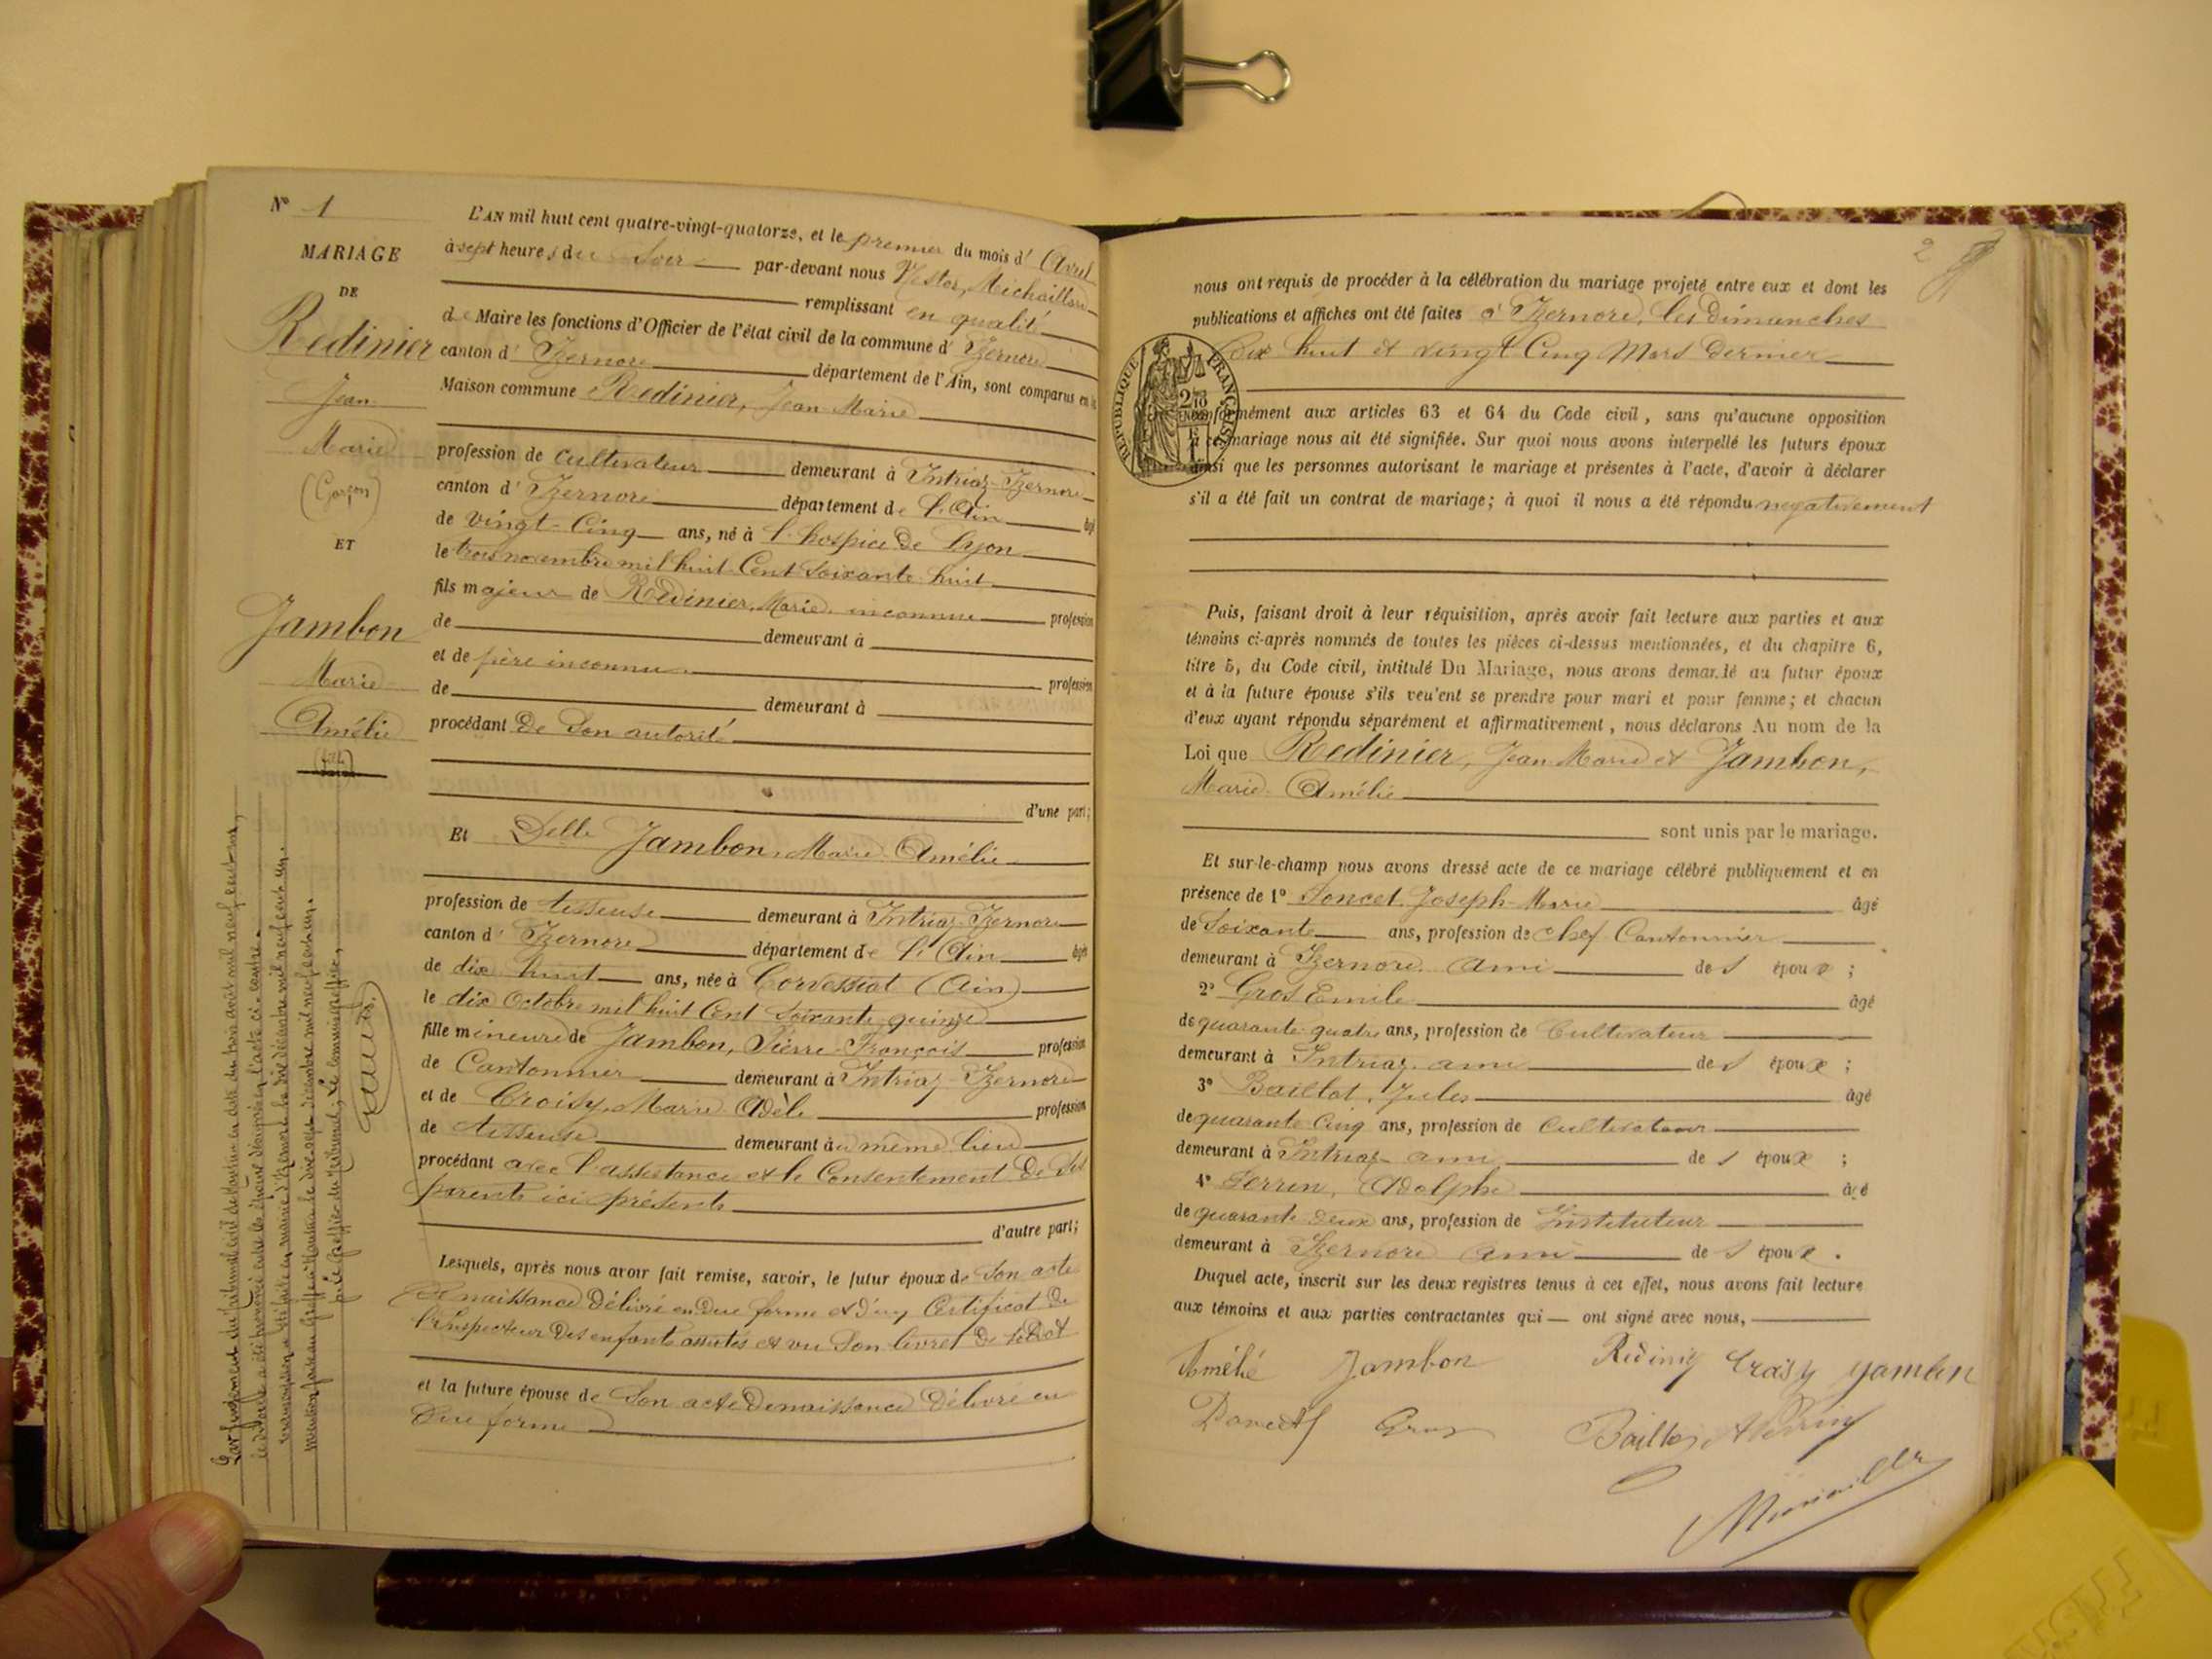 N° 1
MARIAGE
DE
Redinier
Jean
Marie
(Garçon)
ET
Jambon
Marie
Amélie
L'AN mil huit cent quatre-vingt-quatorze, et le premier du mois d'Avril
à sept heures du Soir par-devant nous Nestor, Michaillard
remplissant en qualité
de Maire les fonctions d'Officier de l'état civil de la commune d'Izernore
canton d'Izernore département de l'Ain, sont comparus en la
Maison commune Redinier, Jean Marie
profession de cultivateur demeurant à Intriaz-Izernore
canton d'Izernore département de l'Ain âgé
de vingt-Cinq ans, né à l'hospice de Lyon
le trois novembre mil huit Cent Soixante huit
fils majeur de Redinier, Marie inconnue profession
de demeurant à
et de père inconnu profession
de demeurant à
procédant De Son autorité
d'une part;
Et Delle Jambon, Marie Amélie
profession de tisseuse demeurant à Intriaz-Izernore
canton d'Izernore département de l'Ain âgée
de dix huit ans, née à Corveissiat (Ain)
le dix Octobre mil huit Cent Soixante quinze
fille mineure de Jambon, Pierre-François profession
de Cantonnier demeurant à Intriaz-Izernore
et de Croisy, Marie Adèle profession
de tisseuse demeurant au même lieu
procédant avec l'assistance et le Consentement De Ses
parents ici présents
d'autre part;
Lesquels, après nous avoir fait remise, savoir, le futur époux de Son acte
De naissance Délivré en Due forme et d'un Certificat de
l'Inspecteur Des enfants assistés et vu Son livret De
et la future épouse de Son acte De naissance Délivré en
Due forme
Par jugement du Tribunal civil de Nantua en date du trois août mil neuf cent un,
le divorce a été prononcé entre les époux désignés en l'acte ci-contre.
transcription a été faite en mairie d'Izernore le dix décembre mil neuf cent un.
mention faite au greffe à Nantua le dix sept décembre mil neuf cent un.
p. le Greffier du Tribunal, Le commis greffier,
2
nous ont requis de procéder à la célébration du mariage projeté entre eux et dont les
publications et affiches ont été faites à Izernore, les Dimanches
Dix huit et vingt Cinq Mars Dernier
RÉPUBLIQUE FRANÇAISE
conformément aux articles 63 et 64 du Code civil, sans qu'aucune opposition
à ce mariage nous ait été signifiée. Sur quoi nous avons interpellé les futurs époux
ainsi que les personnes autorisant le mariage et présentes à l'acte, d'avoir à déclarer
s'il a été fait un contrat de mariage; à quoi il nous a été répondu négativement
Puis, faisant droit à leur réquisition, après avoir fait lecture aux parties et aux
témoins ci-après nommés de toutes les pièces ci-dessus mentionnées, et du chapitre 6,
titre 5, du Code civil, intitulé Du Mariage, nous avons demandé au futur époux
et à la future épouse s'ils veulent se prendre pour mari et pour femme; et chacun
d'eux ayant répondu séparément et affirmativement, nous déclarons Au nom de la
Loi que Redinier, Jean Marie et Jambon,
Marie Amélie
sont unis par le mariage.
Et sur-le-champ nous avons dressé acte de ce mariage célébré publiquement et en
présence de 1° Poncet Joseph-Marie âgé
de Soixante ans, profession de chef Cantonnier
demeurant à Izernore ami des époux;
2° Gros Emile âgé
de quarante quatre ans, profession de Cultivateur
demeurant à Intriaz ami des époux;
3° Baillot, Jules âgé
de quarante Cinq ans, profession de Cultivateur
demeurant à Intriaz ami des époux;
4° Perrin, Adolphe âgé
de quarante Deux ans, profession de Instituteur
demeurant à Izernore ami des époux.
Duquel acte, inscrit sur les deux registres tenus à cet effet, nous avons fait lecture
aux témoins et aux parties contractantes qui ont signé avec nous,
Amélie Jambon Redinier Croisy Jambon
Poncet J Gros Baillot A Perrin